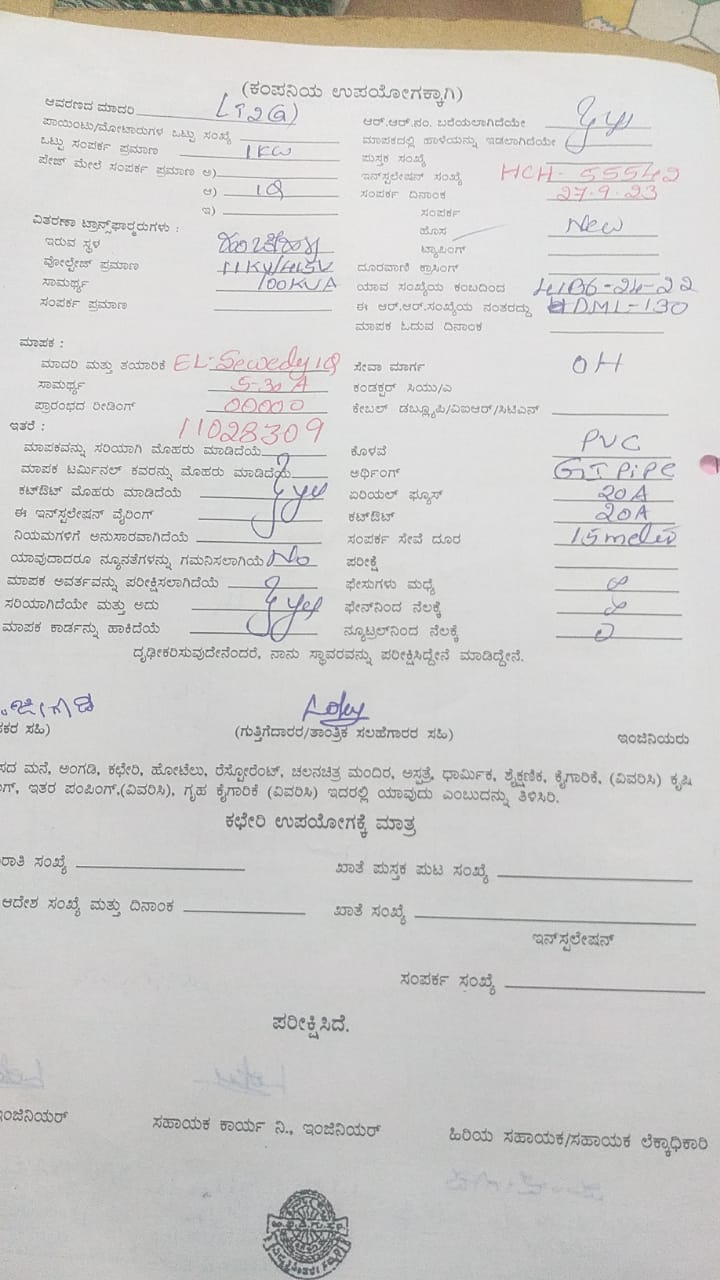 (ಕಂಪನಿಯ ಉಪಯೋಗಕ್ಕಾಗಿ)
ಆವರಣದ ಮಾದರಿ LT2(a)
ಪಾಯಿಂಟು/ಮೋಟಾರುಗಳ ಒಟ್ಟು ಸಂಖ್ಯೆ
ಒಟ್ಟು ಸಂಪರ್ಕ ಪ್ರಮಾಣ 1KW
ಪೇಜ್ ಮೇಲೆ ಸಂಪರ್ಕ ಪ್ರಮಾಣ ಅ)
ಆ)
ಇ)
ವಿತರಣಾ ಟ್ರಾನ್ಸ್‌ಫಾರ್‍ಮರುಗಳು :
ಇರುವ ಸ್ಥಳ
ವೋಲ್ಟೇಜ್ ಪ್ರಮಾಣ 11KV/415V
ಸಾಮರ್ಥ್ಯ 100KVA
ಸಂಪರ್ಕ ಪ್ರಮಾಣ
ಮಾಪಕ :
ಮಾದರಿ ಮತ್ತು ತಯಾರಿಕೆ EL-Sewedy
ಸಾಮರ್ಥ್ಯ 5-30 A
ಪ್ರಾರಂಭದ ರೀಡಿಂಗ್ 00000
ಇತರೆ : 11028309
ಮಾಪಕವನ್ನು ಸರಿಯಾಗಿ ಮೊಹರು ಮಾಡಿದೆಯೆ
ಮಾಪಕ ಟರ್ಮಿನಲ್ ಕವರನ್ನು ಮೊಹರು ಮಾಡಿದೆಯೆ
ಕಟ್‌ಔಟ್ ಮೊಹರು ಮಾಡಿದೆಯೆ yes
ಈ ಇನ್‌ಸ್ಟಲೇಷನ್ ವೈರಿಂಗ್
ನಿಯಮಗಳಿಗೆ ಅನುಸಾರವಾಗಿದೆಯೆ
ಯಾವುದಾದರೂ ನ್ಯೂನತೆಗಳನ್ನು ಗಮನಿಸಲಾಗಿಯೆ No
ಮಾಪಕ ಅವರ್ತವನ್ನು ಪರೀಕ್ಷಿಸಲಾಗಿದೆಯೆ
ಸರಿಯಾಗಿದೆಯೇ ಮತ್ತು ಅದು yes
ಮಾಪಕ ಕಾರ್ಡನ್ನು ಹಾಕಿದೆಯೆ
ಆರ್.ಆರ್.ನಂ. ಬರೆಯಲಾಗಿದೆಯೇ yes
ಮಾಪಕದಲ್ಲಿ ಹಾಳೆಯನ್ನು ಇಡಲಾಗಿದೆಯೇ
ಪುಸ್ತಕ ಸಂಖ್ಯೆ
ಇನ್‌ಸ್ಟಲೇಷನ್ ಸಂಖ್ಯೆ HCH- 55542
ಸಂಪರ್ಕ ದಿನಾಂಕ 27.9.23
ಸಂಪರ್ಕ
ಹೊಸ New
ಟ್ಯಾಪಿಂಗ್
ದೂರವಾಣಿ ಕ್ರಾಸಿಂಗ್
ಯಾವ ಸಂಖ್ಯೆಯ ಕಂಬದಿಂದ
ಈ ಆರ್.ಆರ್.ಸಂಖ್ಯೆಯ ನಂತರದ್ದು DML-130
ಮಾಪಕ ಓದುವ ದಿನಾಂಕ
ಸೇವಾ ಮಾರ್ಗ OH
ಕಂಡಕ್ಟರ್ ಸಿಯು/ಎ
ಕೇಬಲ್ ಡಬ್ಲ್ಯೂಪಿ/ವಿಐಆರ್/ಸಿಟಿಎಸ್
ಕೊಳವೆ PVC
ಅರ್ಥಿಂಗ್ GI PiPe
ಏರಿಯಲ್ ಫ್ಯೂಸ್ 20A
ಕಟ್‌ಔಟ್ 20A
ಸಂಪರ್ಕ ಸೇವೆ ದೂರ 15 meter
ಪರೀಕ್ಷೆ
ಫೇಸುಗಳು ಮಧ್ಯೆ ∞
ಫೇಸ್‌ನಿಂದ ನೆಲಕ್ಕೆ ∞
ನ್ಯೂಟ್ರಲ್‌ನಿಂದ ನೆಲಕ್ಕೆ
ದೃಢೀಕರಿಸುವುದೇನೆಂದರೆ, ನಾನು ಸ್ಥಾವರವನ್ನು ಪರೀಕ್ಷಿಸಿದ್ದೇನೆ ಮಾಡಿದ್ದೇನೆ.
ಕರ ಸಹಿ) (ಗುತ್ತಿಗೆದಾರರ/ತಾಂತ್ರಿಕ ಸಲಹೆಗಾರರ ಸಹಿ) ಇಂಜಿನಿಯರು
ಸದ ಮನೆ, ಅಂಗಡಿ, ಕಛೇರಿ, ಹೋಟೆಲು, ರೆಸ್ಟೋರೆಂಟ್, ಚಲನಚಿತ್ರ ಮಂದಿರ, ಅಸ್ಪತ್ರೆ, ಧಾರ್ಮಿಕ, ಶೈಕ್ಷಣಿಕ, ಕೈಗಾರಿಕೆ, (ವಿವರಿಸಿ) ಕೃಷಿ
ಗ್, ಇತರ ಪಂಪಿಂಗ್,(ವಿವರಿಸಿ), ಗೃಹ ಕೈಗಾರಿಕೆ (ವಿವರಿಸಿ) ಇದರಲ್ಲಿ ಯಾವುದು ಎಂಬುದನ್ನು ತಿಳಿಸಿರಿ.
ಕಛೇರಿ ಉಪಯೋಗಕ್ಕೆ ಮಾತ್ರ
ರಾತಿ ಸಂಖ್ಯೆ ಖಾತೆ ಪುಸ್ತಕ ಪುಟ ಸಂಖ್ಯೆ
ಆದೇಶ ಸಂಖ್ಯೆ ಮತ್ತು ದಿನಾಂಕ ಖಾತೆ ಸಂಖ್ಯೆ
ಇನ್‌ಸ್ಟಲೇಷನ್
ಸಂಪರ್ಕ ಸಂಖ್ಯೆ
ಪರೀಕ್ಷಿಸಿದೆ.
ಇಂಜಿನಿಯರ್ ಸಹಾಯಕ ಕಾರ್ಯ ನಿ., ಇಂಜಿನಿಯರ್ ಹಿರಿಯ ಸಹಾಯಕ/ಸಹಾಯಕ ಲೆಕ್ಕಾಧಿಕಾರಿ